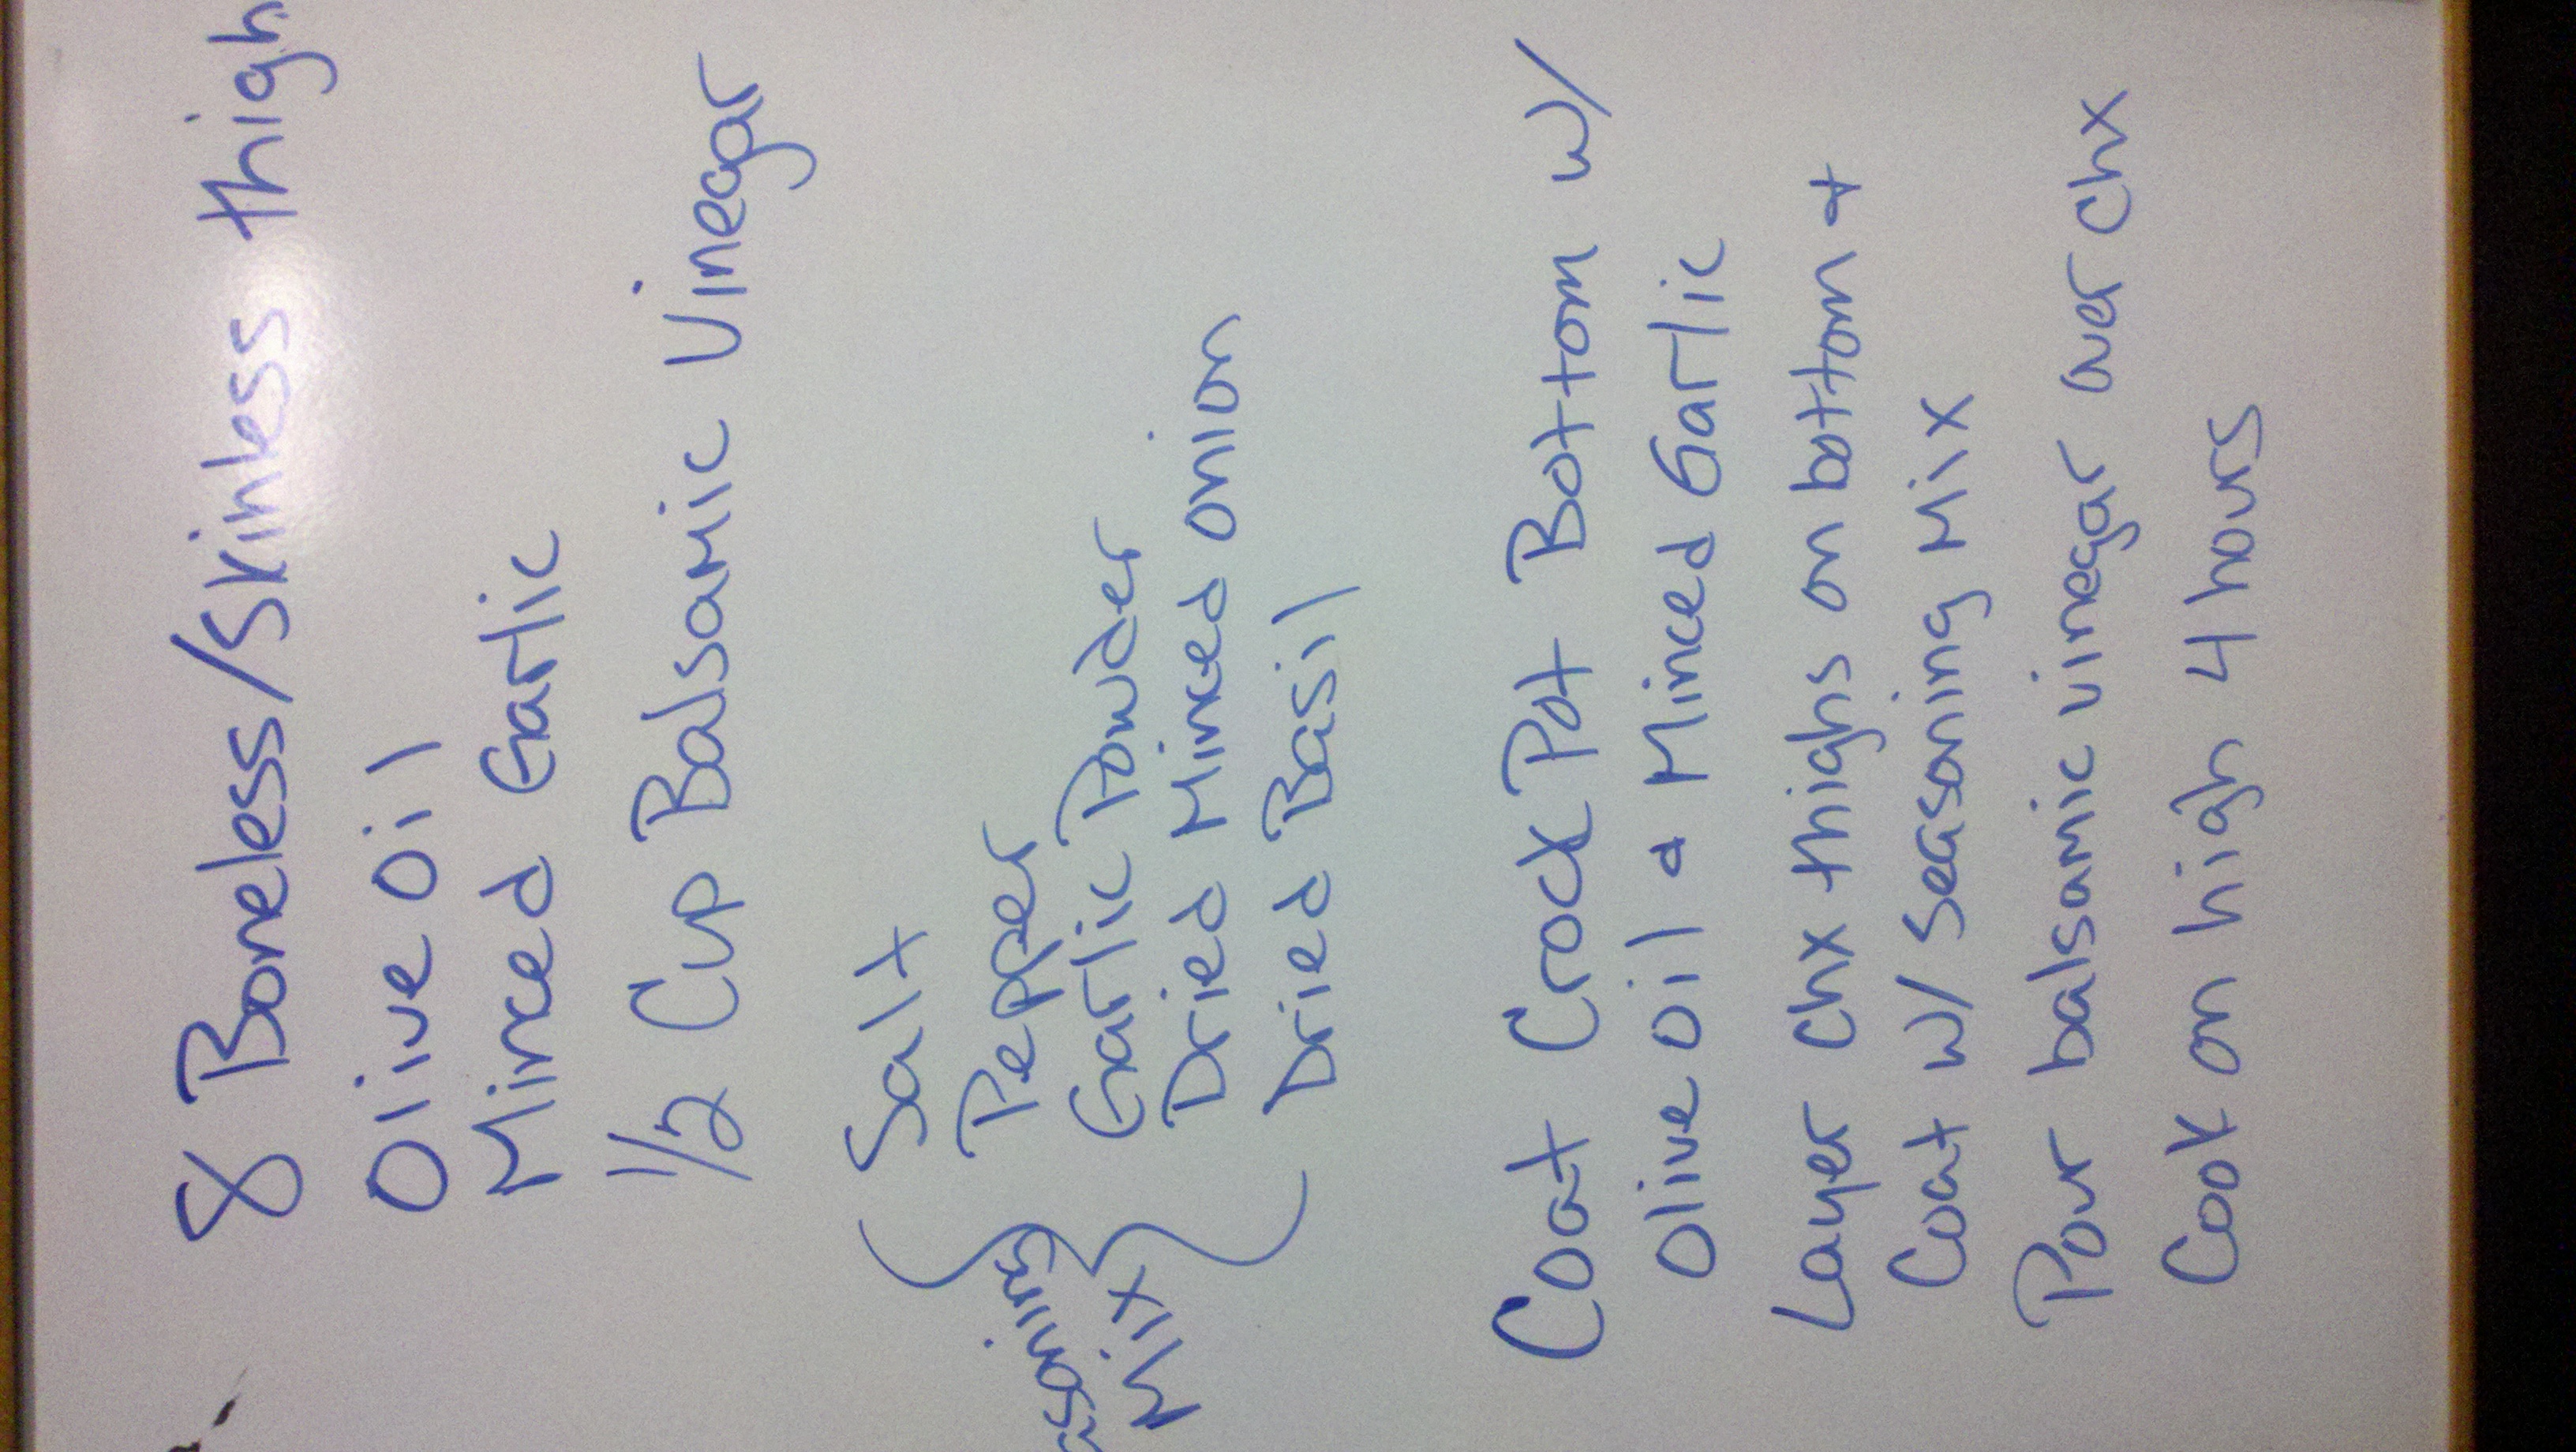 8 Boneless/Skinless thigh
Olive Oil
Minced Garlic
1/2 Cup Balsamic Vinegar
Salt
Pepper
asoning
Mix
Garlic Powder
Dried Minced onion
Dried Basil
Coat Crock Pot Bottom w/
Olive Oil & Minced Garlic
Layer chx thighs on bottom &
Coat w/ Seasoning Mix
Pour balsamic vinegar over chx
Cook on high 4 hours